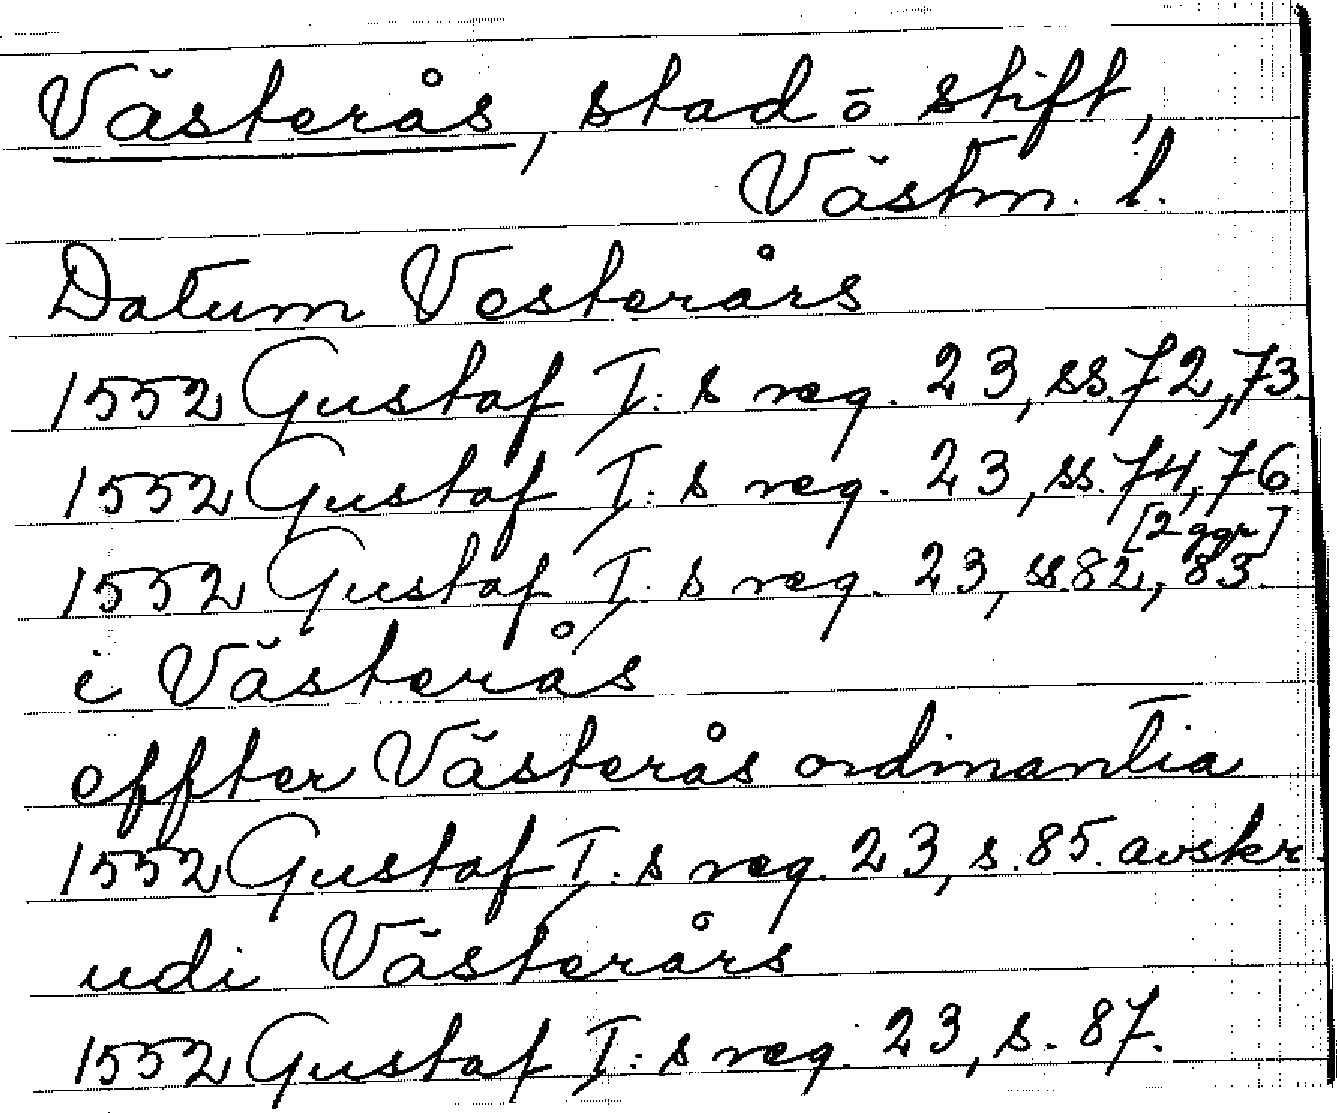 Västerås, stad ō stift,
Västm. l.
Datum Vesterårs
1552 Gustaf I: s reg. 23, ss. 72, 73.
1552 Gustaf I: s reg. 23, ss. 74, 76.
[2 ggr]
1552 Gustaf I: s reg. 23, ss. 82, 83.
i Västerås
effter Västerås ordinantia
1552 Gustaf I: s reg. 23, s. 85. avskr.
udi Västerårs
1552 Gustaf I: s reg. 23, s. 87.